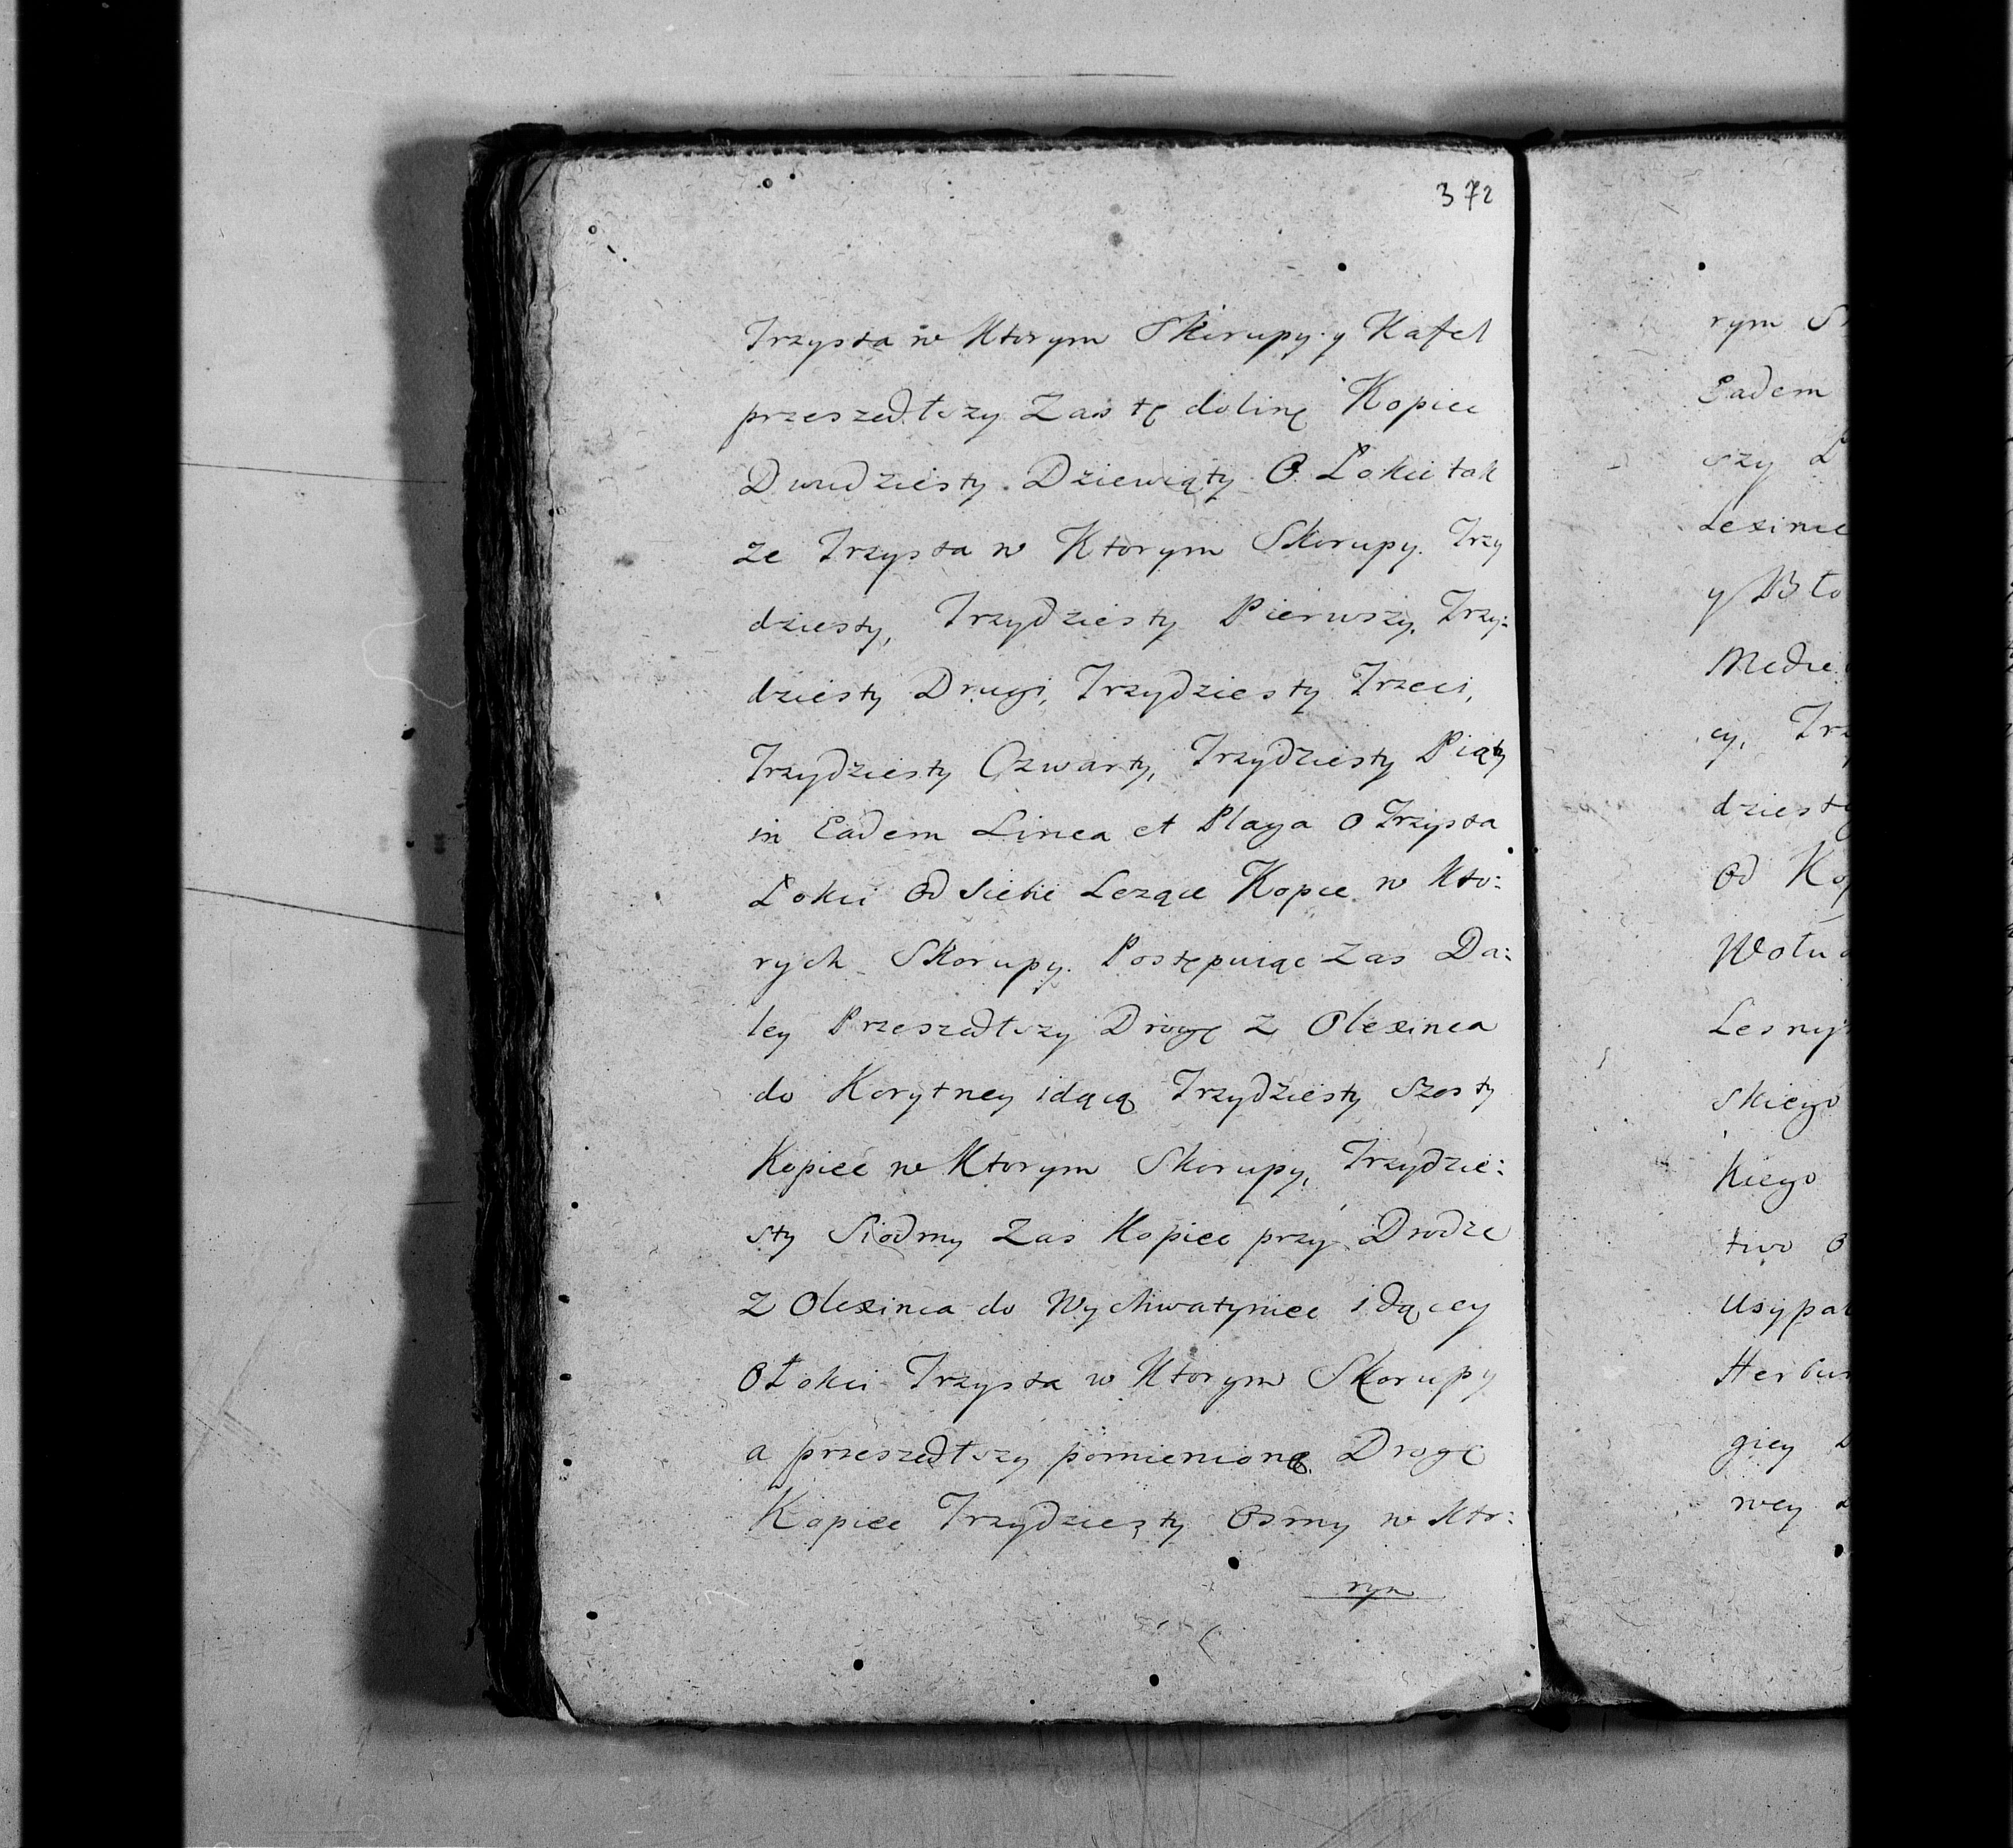 372
Trzysta w Ktorym Skirupy y Kafel
przeszedłszy Zas tę dolinę Kopiec
Dwudziesty Dziewiąty O Łokci tak
ze Trzysta w Ktorym Skorupy. Trzy
dziesty, Trzydziesty Pierwszy, Trzy:
dziesty Drugi, Trzydziesty Trzeci,
Trzydziesty Czwarty, Trzydziesty Piąty
in Eadem Linea et Plaga O Trzysta
Łokci Od Siebie Leząc Kopce w Kto:
rych Skorupy. Postępuiąc Zas Da:
ley Przeszedłszy Drogę Z Olexinca
do Korytney idącą Trzydziesty Szosty
Kopiec w Ktorym Skorupy, Trzydzie:
sty Siodmy Zas Kopiec przy Drodze
Z Olexinca do Wychwatyniec idącey
O Łokci Trzysta w Ktorym Skorupy
a przeszedłszy pomienioną Drogę
Kopiec Trzydziesty Osmy w Kto:
rym
rym
Eadem
szy
Lexinie
y Bło
Medie
cy, Trz
dziesty
Od Kop
Wołu
Lesny
skiego
kiego
two O
Usypa
Herbu
giey
wey